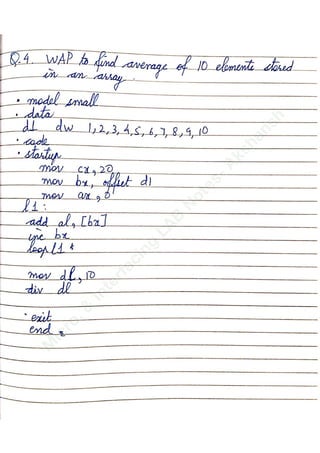 Q.4. WAP to find average of 10 elements stored
in an array.
. model small
. data
d1 dw 1,2,3,4,5,6,7,8,9,10
. code
. startup
mov cx, 20
mov bx, offset d1
mov ax, 0
l1 :
add al, [bx]
inc bx
loop l1
mov dl, 10
div dl
. exit
end
LAB Notes- Akshansh